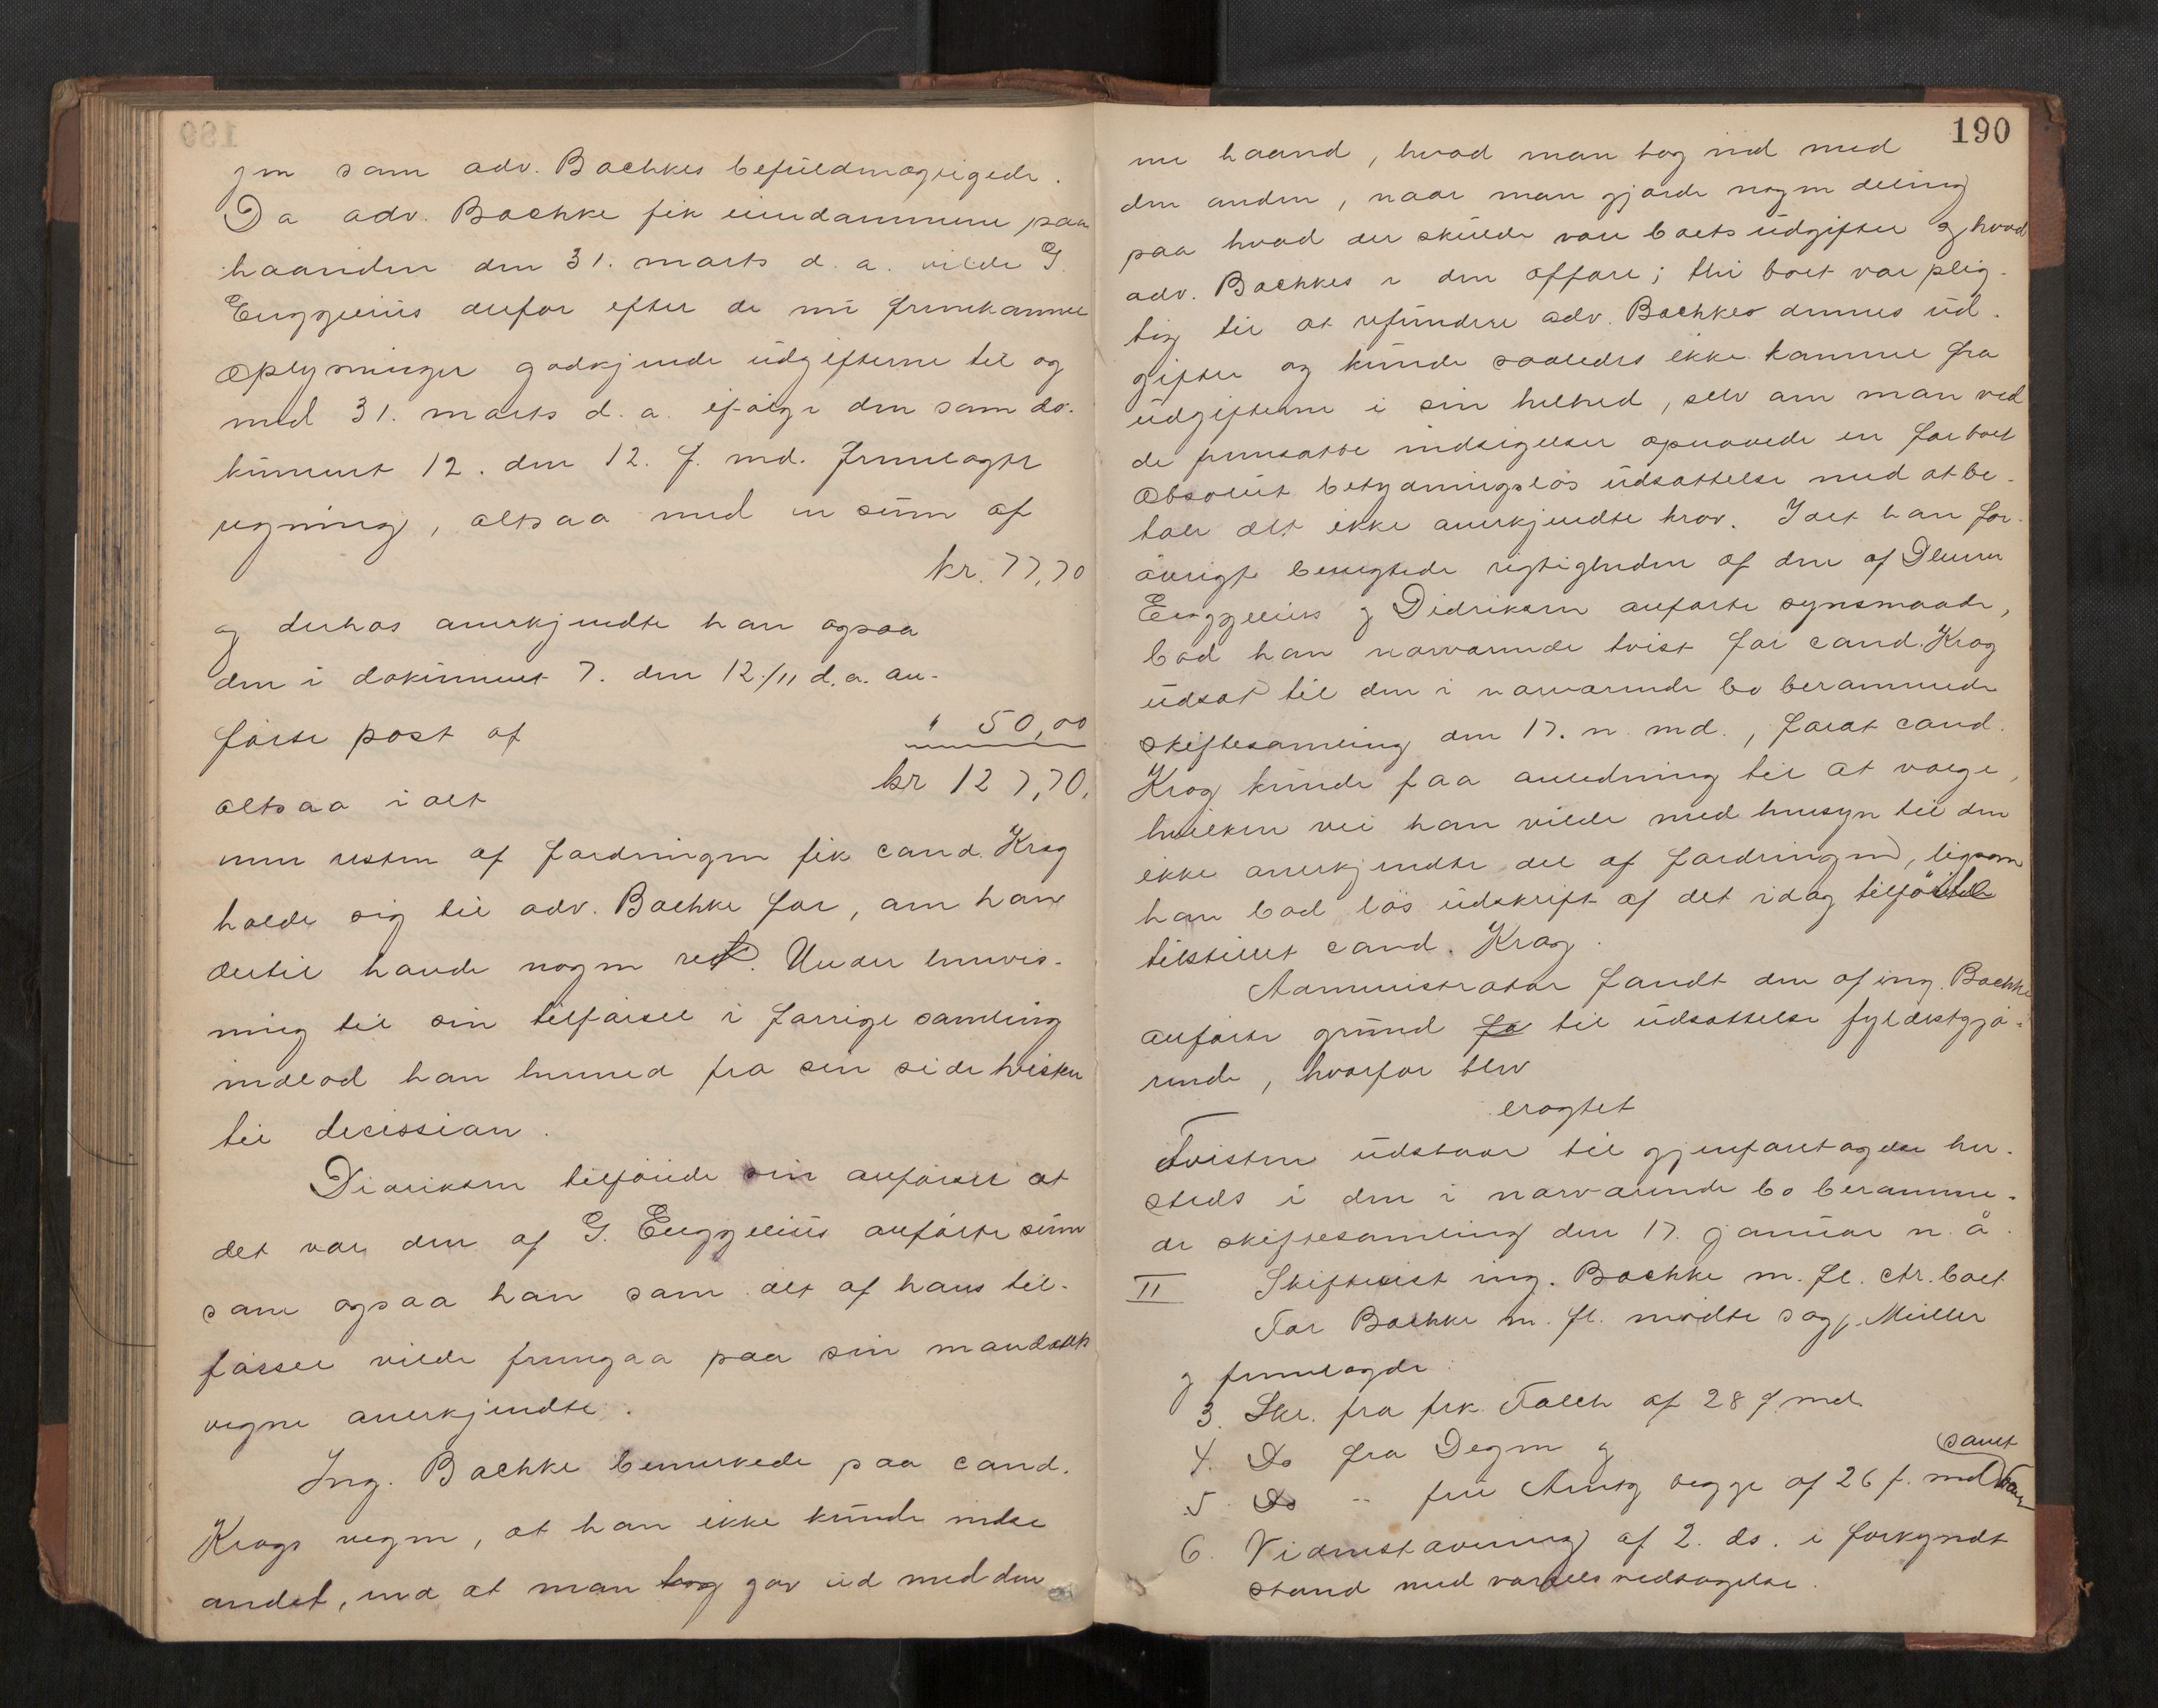 gen som adv. Bachkes befuldmægtigede.
Da adv. Bachke fik eiendommene paa
haanden den 31. marts d. a. vilde G.
Euggenius derfor efter de nu fremkomne
oplysninger godkjende udgifterne til og
med 31. marts d. a. ifølge den som do-
kument 12. den 12. f. md. fremlagte
regning, altsaa med en sum af
kr. 77,70
og derhos anerkjendte han ogsaa
den i dokument 7. den 12./11 d. a. an-
førte post af " 50,00
altsaa i alt kr 127,70,
men resten af fordringen fik cand. Krog
holde sig til adv. Bachke for, om han
dertil havde nogen ret. Under henvis-
ning til sin tilførsel i forrige samling
indlod han hermed fra sin side tvisten
til decission.
Didriksen tilføiede sin anførsel at
det var den af G. Euggenius anførte sum
som ogsaa han som alt af hans til-
førsel vilde fremgaa paa sin mandants
vegne anerkjendte.
Ing. Bachke bemerkede paa cand.
Krogs vegne, at han ikke kunde indse
andet, end at man tog gav ud med den
190
ene haand, hvad man tog ind med
den anden, naar man gjorde nogen deling
paa hvad der skulde være boets udgifter og hvad
adv. Bachkes i den affære; thi boet var plig-
tig til at refundere adv. Bachkes dennes ud-
gifter og kunde saaledes ikke komme fra
udgifterne i sin helhed, selv om man ved
de fremsatte indsigelser opnaaede en for boet
absolut betydningsløs udsættelse med at be-
tale det ikke anerkjendte krav. Idet han for-
øvrigt benegtede rigtigheden af den af Dherrer
Euggenius og Didriksen anførte synsmaade,
bad han nærværende tvist for cand. Krog
udsat til den i nærværende bo berammede
skiftesamling den 17. n. md., forat cand.
Krog kunde faa anledning til at vælge,
hvilken vei han vilde med hensyn til den
ikke anerkjendte del af fordringen, ligesom
han bad løs udskrift af det idag tilførte
tilstillet cand. Krog.
Administrator fandt den af ing. Bachke
anførte grund fo til udsættelse fyldestgjø-
rende, hvorfor blev
eragtet
Tvisten udstaar til gjenforetagelse her-
steds i den i nærværende bo beramme-
de skiftesamling den 17. januar n. å.
II Skiftetvist ing. Bachke m. fl. ctr. boet
For Bachke m. fl. mødte sagf. Müller
og fremlagde:
3. Skr. fra frk. Falch af 28 f. md.
4. Do fra Degen og
5. Do " fru Arntz begge af 26 f. md samt
6. Vidnestævning af 2. ds. i forkyndt
stand med varsels vedtagelse.